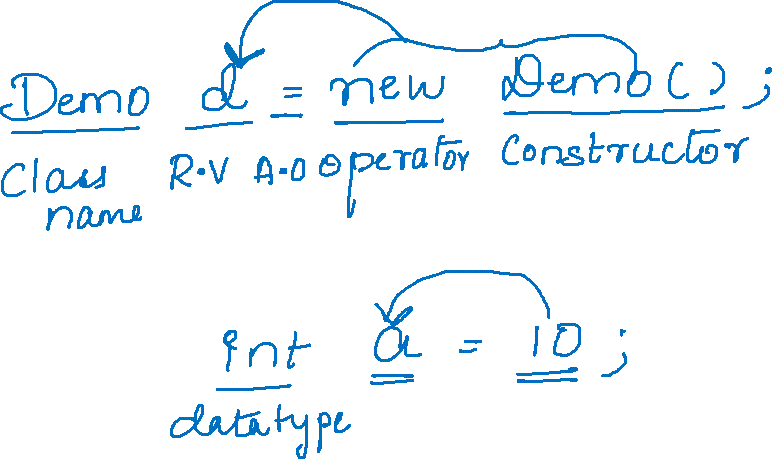 Demo d = new Demo();
Class name R.V A.O Operator Constructor
int a = 10;
datatype